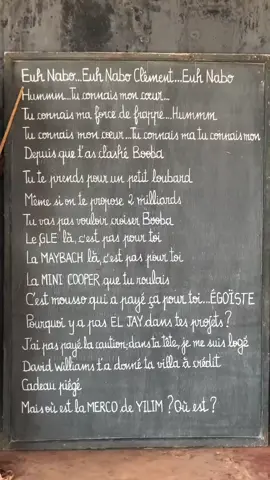 Euh Nabo...Euh Nabo Clément...Euh Nabo
Hummm...Tu connais mon cœur...
Tu connais ma force de frappe...Hummm
Tu connais mon cœur...Tu connais ma tu connais mon
Depuis que t'as clashé Booba
Tu te prends pour un petit loubard
Même si on te propose 2 milliards
Tu vas pas vouloir croiser Booba
Le GLE là, c'est pas pour toi
La MAYBACH là, c'est pas pour toi
La MINI COOPER que tu roulais
C'est mousso qui a payé ça pour toi...ÉGOÏSTE
Pourquoi y a pas EL JAY dans tes projets ?
J'ai pas payé la caution dans ta tête, je me suis logé
David williams t'a donné ta villa à crédit
Cadeau piégé
Mais où est la MERCO de YILIM ? Où est ?